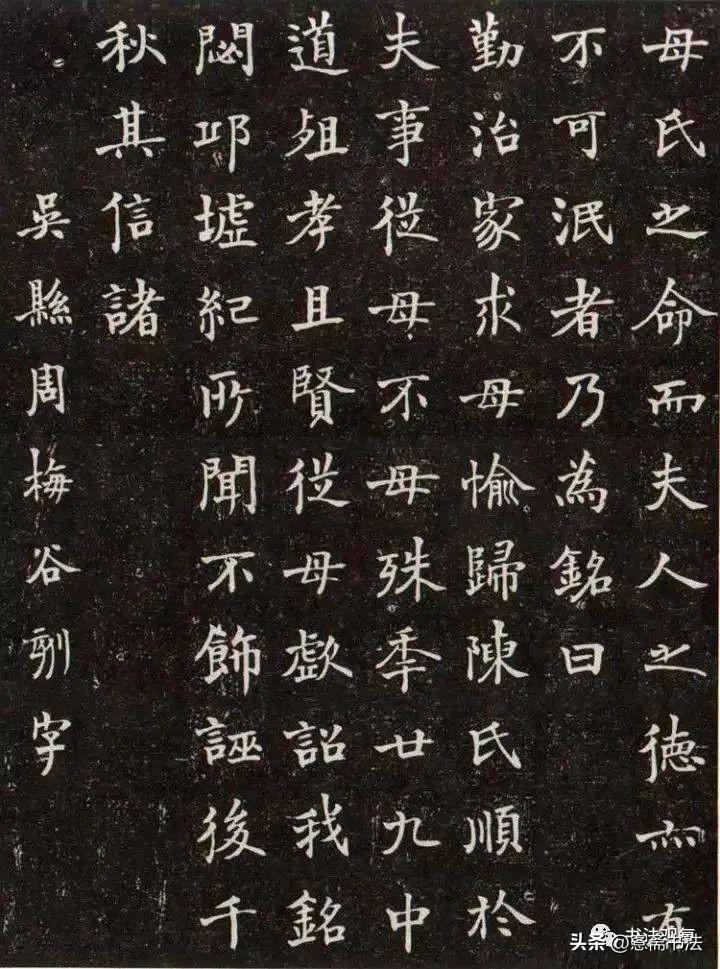 母氏之命而夫人之德亦有
不可泯者乃為銘曰
勤治家求母愉歸陳氏順於
夫事從母不母殊秊廿九中
道殂孝且賢從母歔詔我銘
閟邛墟紀所聞不飾誣後千
秋其信諸
吳縣周梅谷刻字
书法观复
头条@愙斋书法